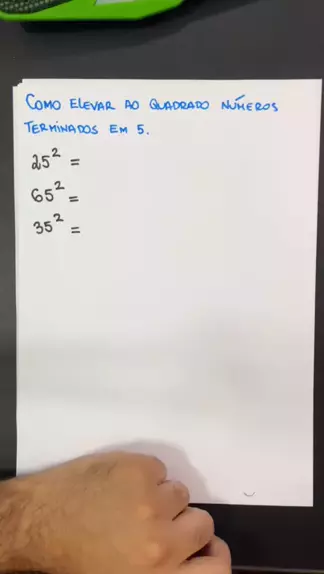 COMO ELEVAR AO QUADRADO NÚMEROS
TERMINADOS EM 5.
25² =
65² =
35² =